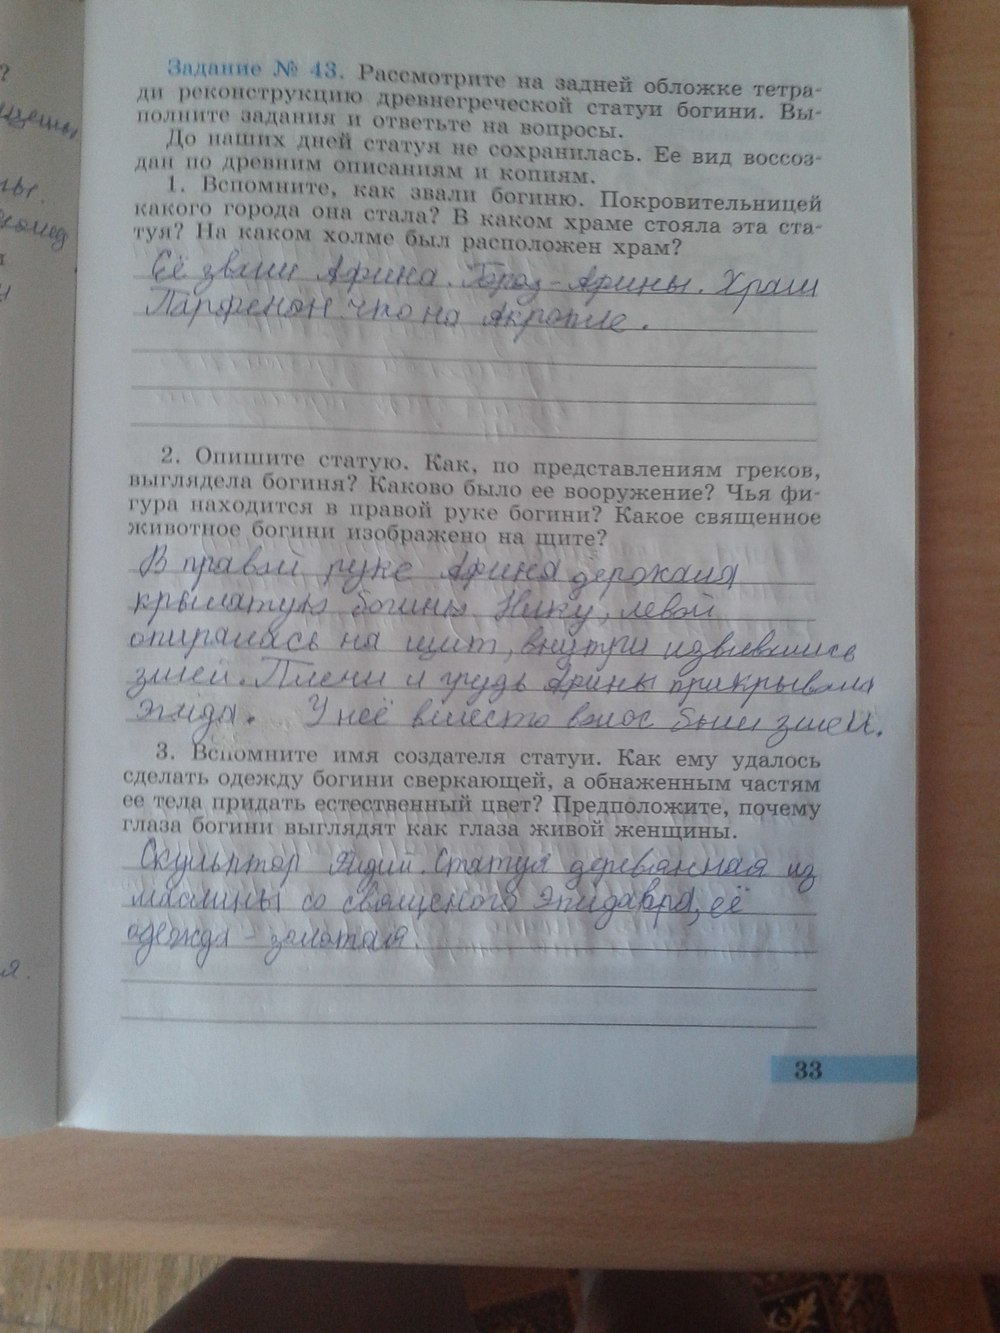 ?
Задание № 43. Рассмотрите на задней обложке тетра-
ди реконструкцию древнегреческой статуи богини. Вы-
полните задания и ответьте на вопросы.
До наших дней статуя не сохранилась. Ее вид воссоз-
дан по древним описаниям и копиям.
1. Вспомните, как звали богиню. Покровительницей
какого города она стала? В каком храме стояла эта ста-
туя? На каком холме был расположен храм?
Её звали Афина. Город - Афины. Храм
Парфенон что на Акрополе.
2. Опишите статую. Как, по представлениям греков,
выглядела богиня? Каково было ее вооружение? Чья фи-
гура находится в правой руке богини? Какое священное
животное богини изображено на щите?
В правой руке Афина держала
крылатую богины Нику, левой
опиралась на щит, внутри извившись
змей. Плечи и грудь Афины прикрывала
Эгида. У неё вместо волос были змеи.
3. Вспомните имя создателя статуи. Как ему удалось
сделать одежду богини сверкающей, а обнаженным частям
ее тела придать естественный цвет? Предположите, почему
глаза богини выглядят как глаза живой женщины.
Скульптор Фидий. Статуя деревянная из
маслины со священого Эпидавра, её
одежда - золотая.
33